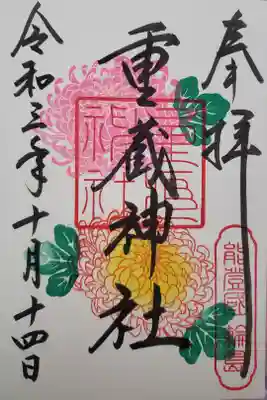 奉拝
重蔵神社
令和三年十月十四日
能登国輪島